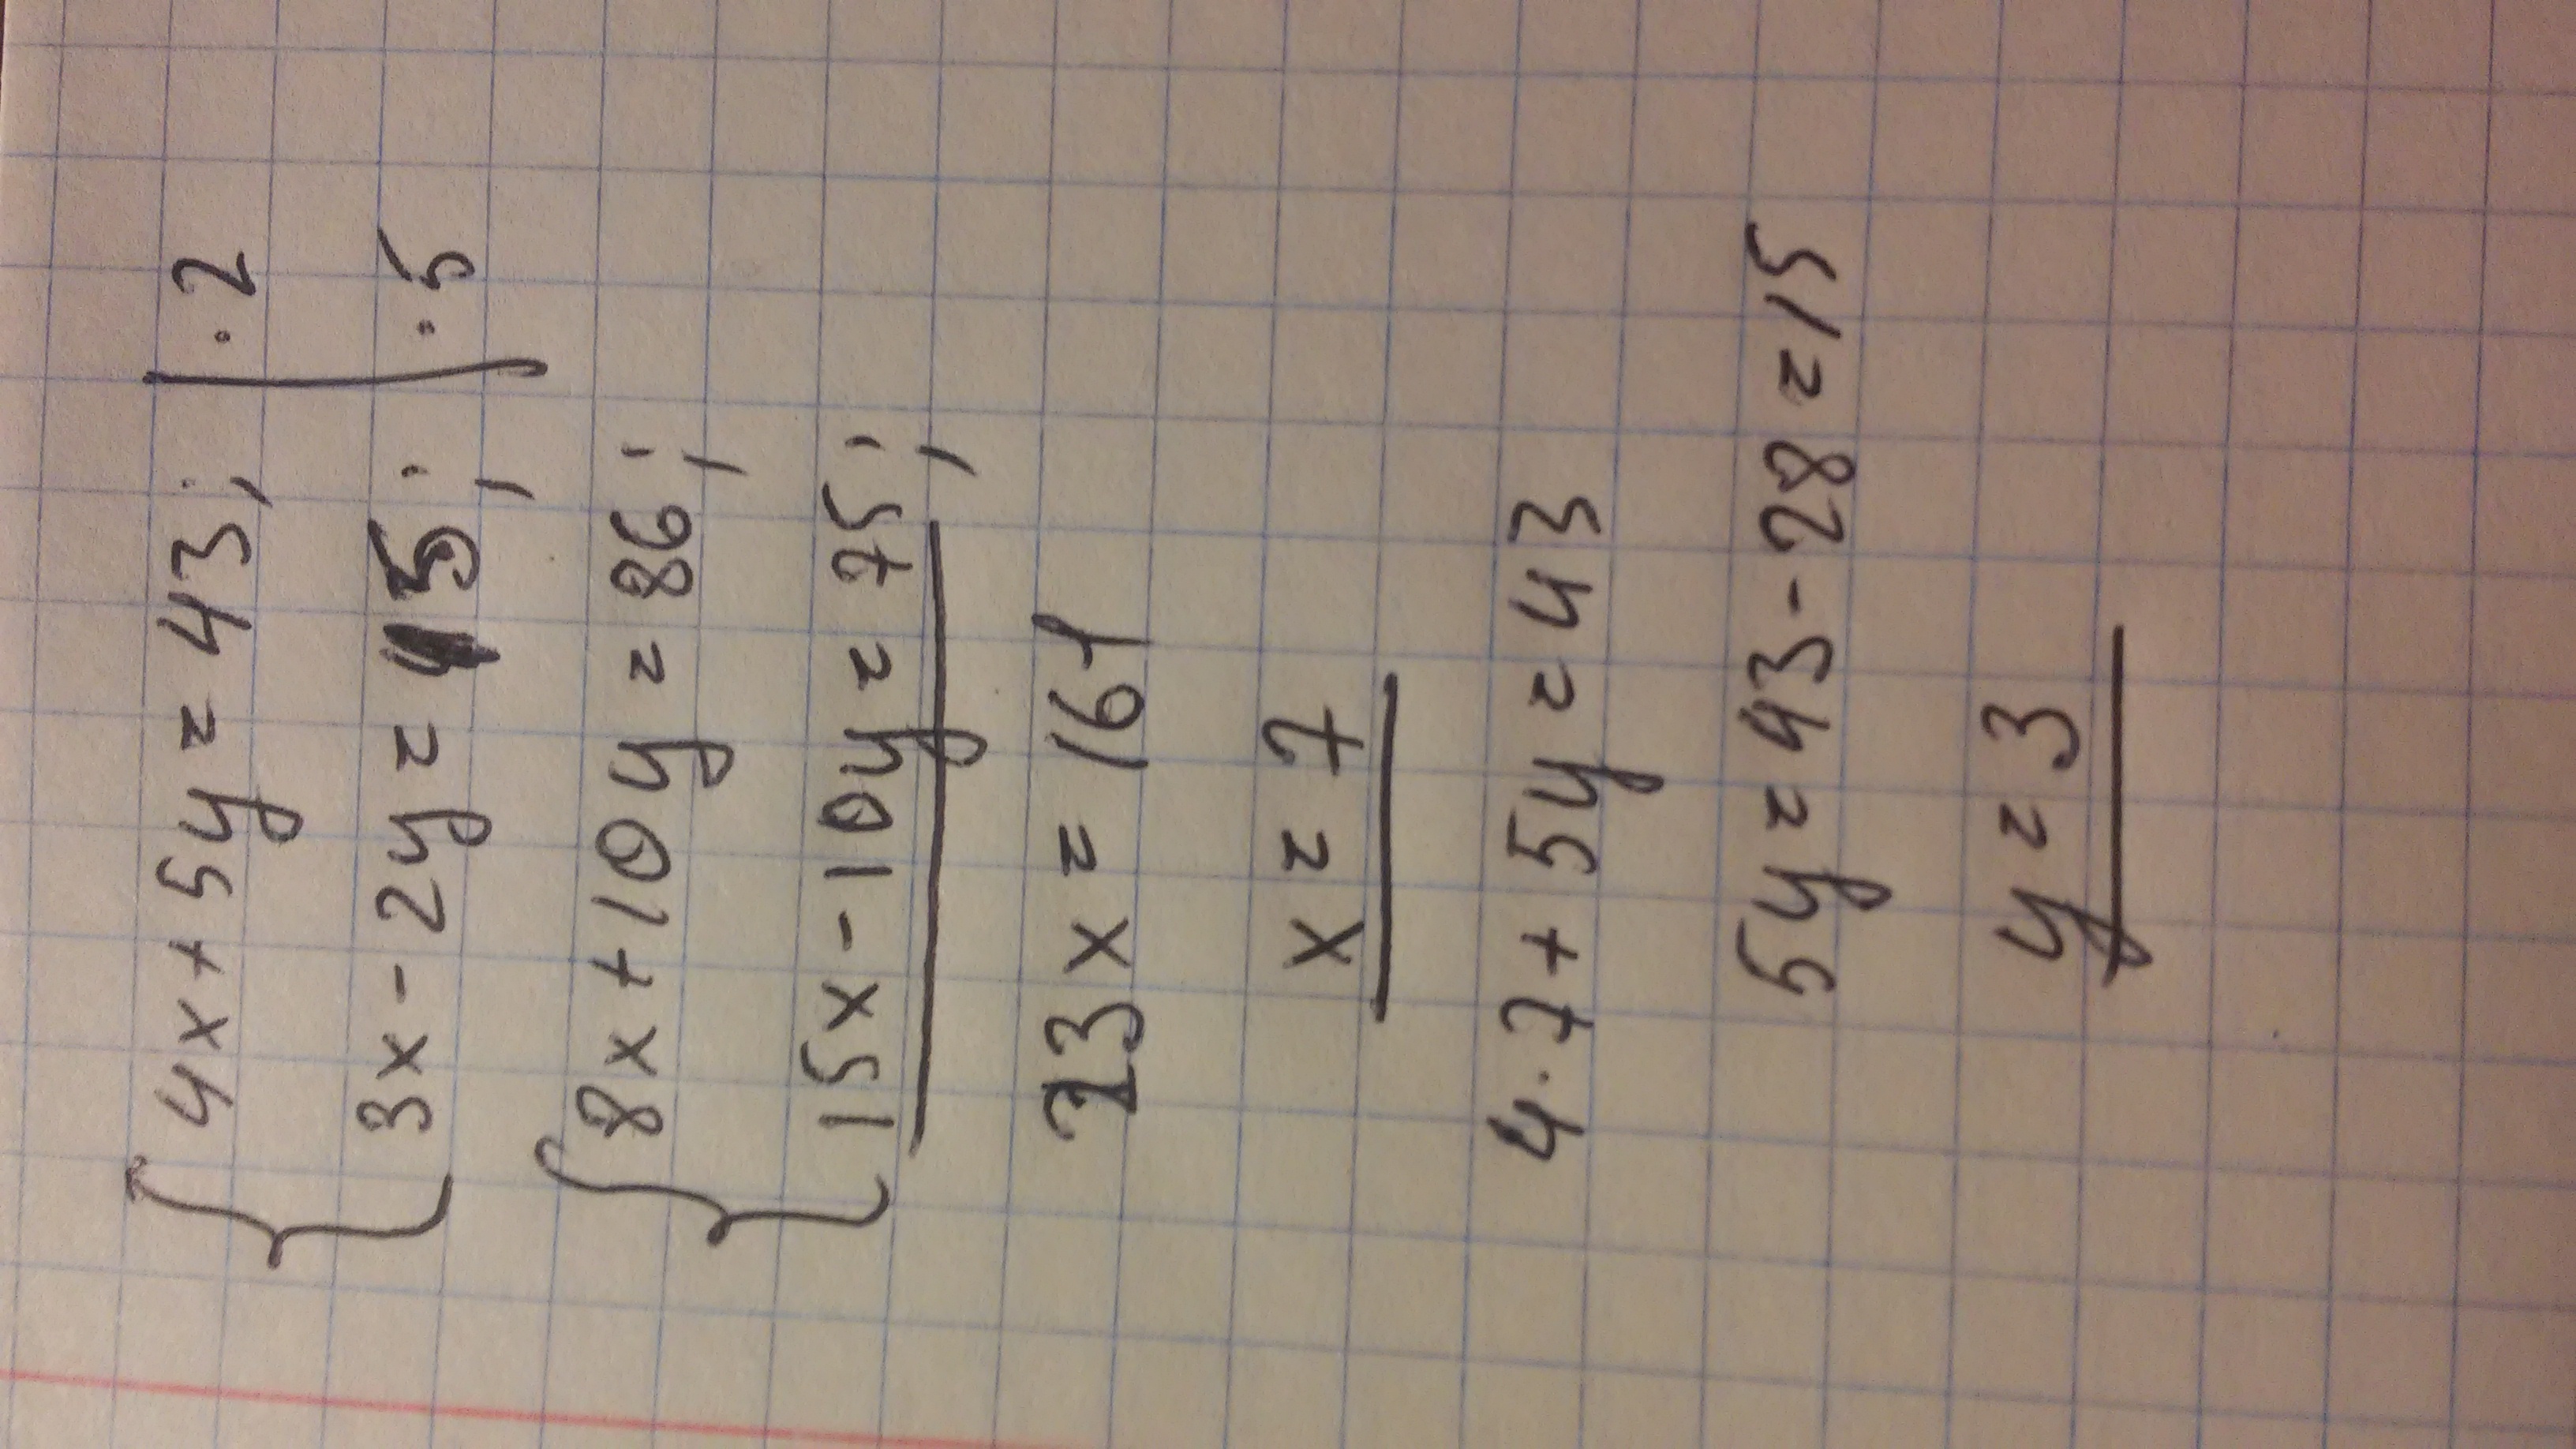 4x+5y=43; | ·2
3x-2y=15; | ·5
8x+10y=86;
15x-10y=75;
23x=161
x=7
4·7+5y=43
5y=43-28=15
y=3